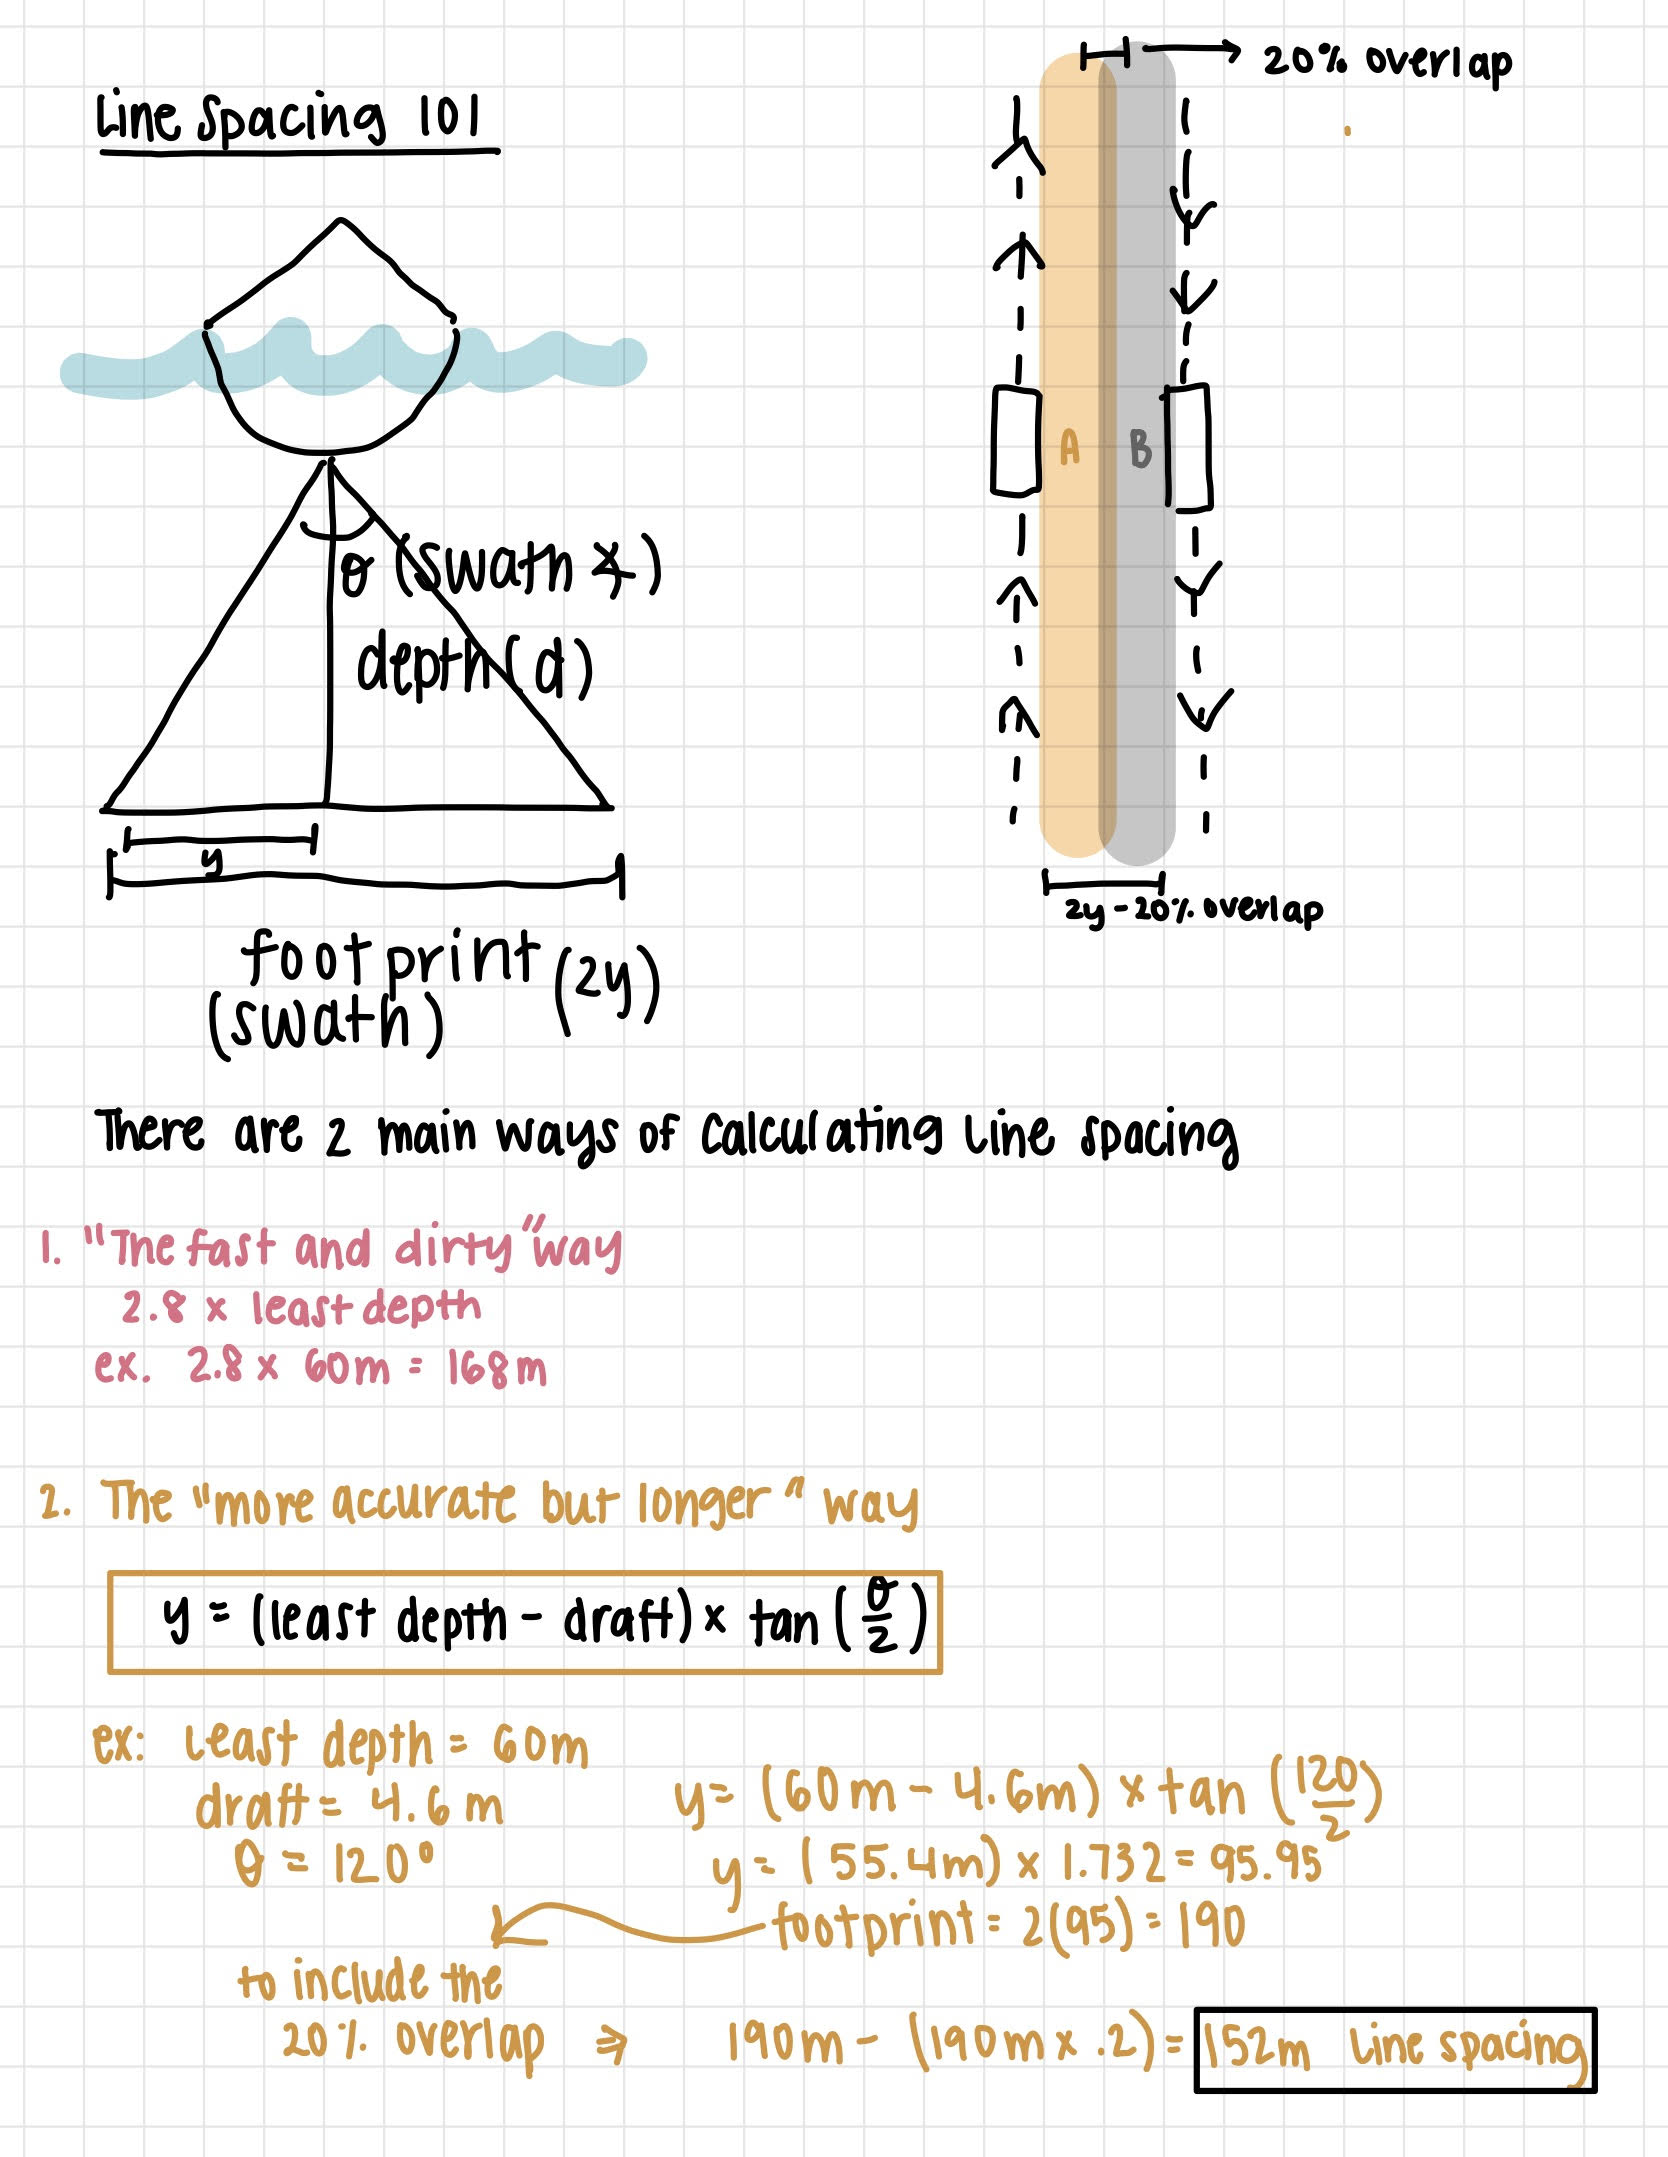 Line Spacing 101
20% overlap
A
B
θ (swath ∡)
depth (d)
y
2y - 20% overlap
footprint (2y)
(swath)
There are 2 main ways of calculating line spacing
1. "The fast and dirty" way
2.8 x least depth
ex. 2.8 x 60m = 168m
2. The "more accurate but longer" way
y = (least depth - draft) x tan (θ/2)
ex: least depth = 60m
draft = 4.6 m
θ = 120°
y = (60m - 4.6m) x tan (120/2)
y = (55.4m) x 1.732 = 95.95
footprint = 2(95) = 190
to include the
20% overlap ⇒ 190m - (190m x .2) = 152m Line spacing